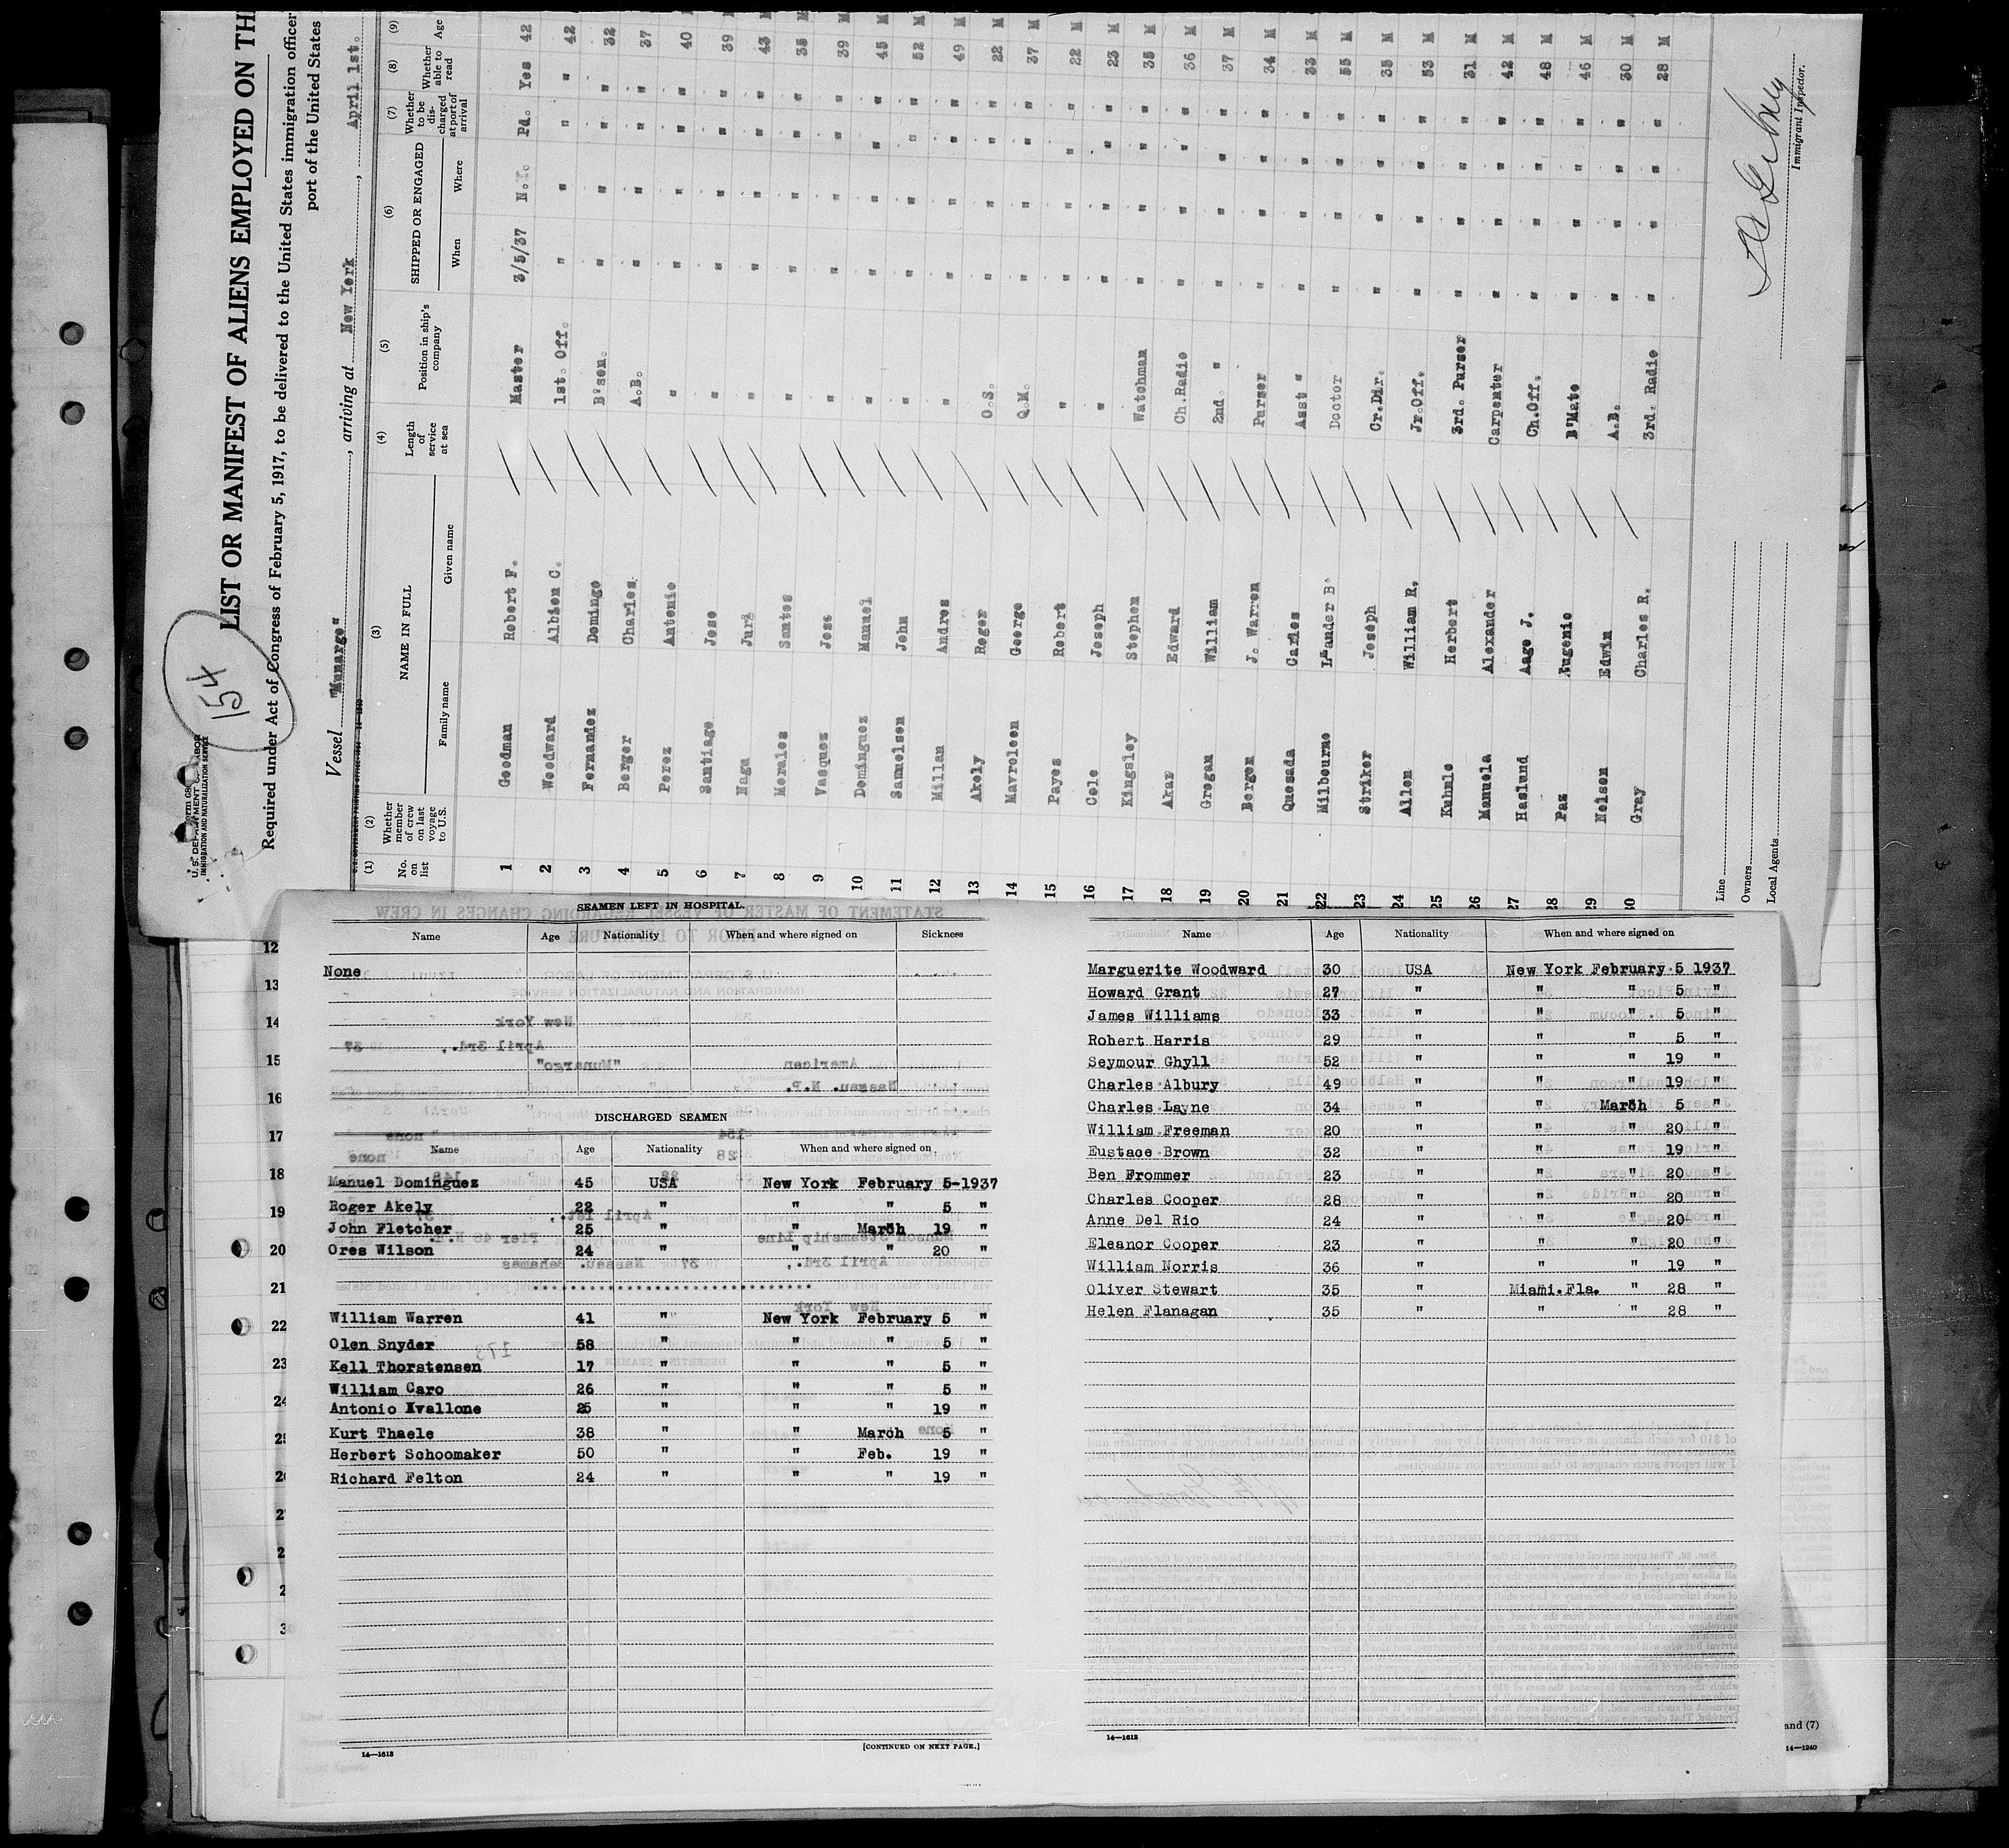 154
U.S. DEPARTMENT OF LABOR
IMMIGRATION AND NATURALIZATION SERVICE
LIST OR MANIFEST OF ALIENS EMPLOYED ON TH
Required under Act of Congress of February 5, 1917, to be delivered to the United States immigration officer
port of the United States
Vessel "Munargo", arriving at New York, April 1st.
(1) (2) (3) (4) (5) (6) (7) (8) (9)
No. on list Whether member of crew on last voyage to U.S. NAME IN FULL Length of service at sea Position in ship's company SHIPPED OR ENGAGED Whether to be discharged at port of arrival Whether able to read Age
Family name Given name When Where
1 Goodman Robert F. Master 3/5/37 N.Y. Pd. Yes 42
2 Woodward Albion C. 1st. Off. " " " " 42
3 Fernandez Domingo B'son. " " " " 32
4 Berger Charles A.B. " " " " 37
5 Perez Antonio " " " " " 40
6 Santiago Jose " " " " " 39 M
7 Naga Jura " " " " " 43 M
8 Morales Santos " " " " " 35 M
9 Vasquez Jose " " " " " 39 M
10 Dominguez Manuel " " " " " 45 M
11 Samuelsen John " " " " " 52 M
12 Millan Andres " " " " " 49 M
13 Akely Roger O.S. " " " " 22 M
14 Mavroleon George Q.M. " " " " 37 M
15 Payes Robert " " " " " 22 M
16 Cole Joseph " " " " " 23 M
17 Kingsley Stephen Watchman " " " " 35 M
18 Akar Edward Ch.Radio " " " " 36 M
19 Grogan William 2nd. " " " " " 37 M
20 Bergen J. Warren Purser " " " " 34 M
21 Quesada Carlos Asst " " " " " 33 M
22 Milbourne Leander B. Doctor " " " " 55 M
23 Striker Joseph Cr.Dir. " " " " 35 M
24 Allen William R. Jr.Off. " " " " 53 M
25 Kuhnle Herbert 3rd. Purser " " " " 31 M
26 Manuela Alexander Carpenter " " " " 42 M
27 Haslund Aage J. Ch.Off. " " " " 48 M
28 Paz Eugenio B'Mate " " " " 46 M
29 Nelson Edwin A.B. " " " " 30 M
30 Gray Charles R. 3rd. Radio " " " " 28 M
Line
Owners
Local Agents
Immigrant Inspector.
SEAMEN LEFT IN HOSPITAL.
Name Age Nationality When and where signed on Sickness
None
DISCHARGED SEAMEN
Name Age Nationality When and where signed on
Manuel Dominguez 45 USA New York February 5-1937
Roger Akely 22 " " " 5 "
John Fletcher 25 " " March 19 "
Ores Wilson 24 " " " 20 "
William Warren 41 " New York February 5 "
Olen Snyder 58 " " " 5 "
Kell Thorstensen 17 " " " 5 "
William Caro 26 " " " 5 "
Antonio Avallone 25 " " " 19 "
Kurt Thaele 38 " " March 5 "
Herbert Schoomaker 50 " " Feb. 19 "
Richard Felton 24 " " " 19 "
14—1613
[CONTINUED ON NEXT PAGE.]
Name Age Nationality When and where signed on
Marguerite Woodward 30 USA New York February 5 1937
Howard Grant 27 " " " 5 "
James Williams 33 " " " 5 "
Robert Harris 29 " " " 5 "
Seymour Ghyll 52 " " " 19 "
Charles Albury 49 " " " 19 "
Charles Layne 34 " " March 5 "
William Freeman 20 " " " 20 "
Eustace Brown 32 " " " 19 "
Ben Frommer 23 " " " 20 "
Charles Cooper 28 " " " 20 "
Anne Del Rio 24 " " " 20 "
Eleanor Cooper 23 " " " 20 "
William Norris 36 " " " 19 "
Oliver Stewart 35 " Miami.Fla. " 28 "
Helen Flanagan 35 " " " 28 "
14—1613
and (7)
14—1240
12
13
14
15
16
17
18
19
20
21
22
23
24
25